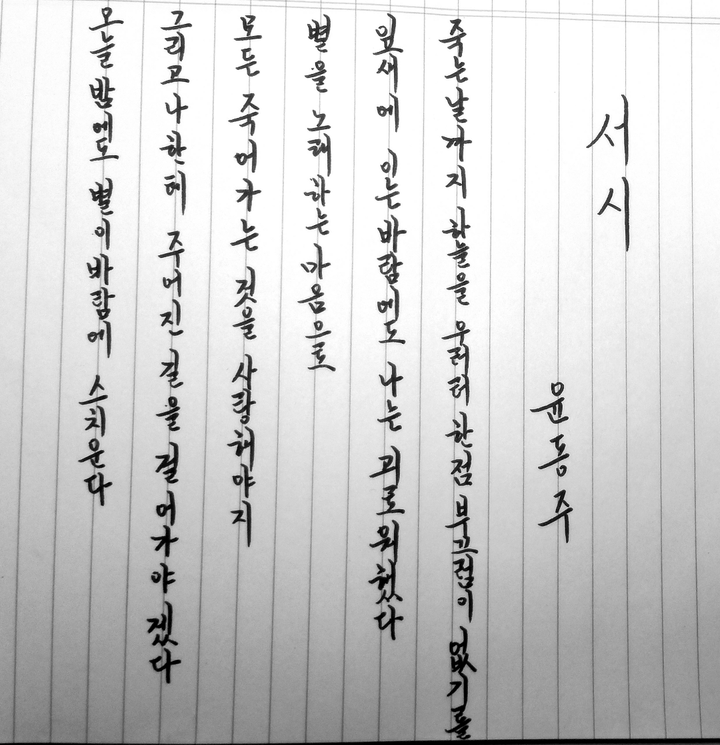 서시
윤동주
죽는날까지 하늘을 우러러 한점 부끄점이 없기를
잎새에 이는바람에도 나는 괴로워했다
별을 노래하는마음으로
모든 죽어가는 것을 사랑해야지
그리고나한테 주어진 길을 걸어가야겠다
오늘밤에도 별이바람에 스치운다